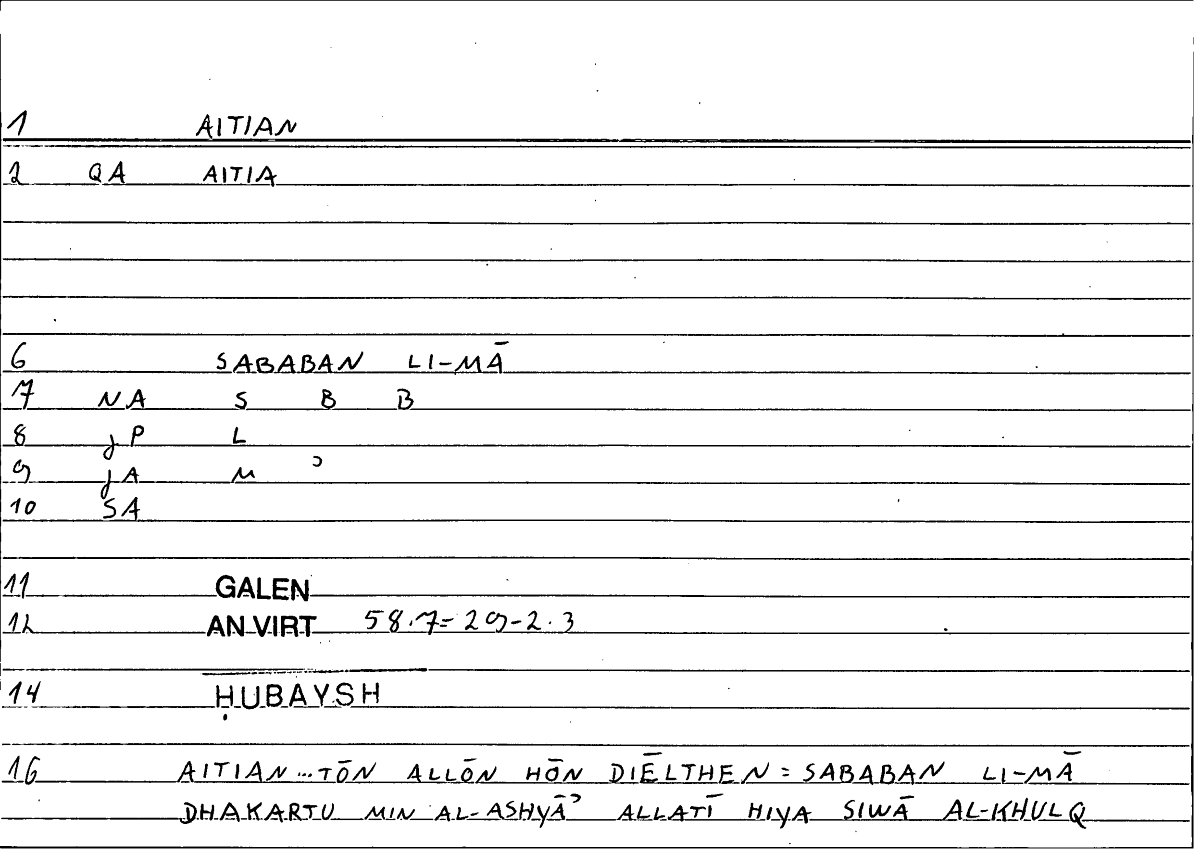 1 AITIAN
2 QA AITIA
6 SABABAN LI-MĀ
7 NA S B B
8 jP L
9 jA M ɔ
10 SA
11 GALEN
12 AN VIRT 58.7=29-2.3
14 ḤUBAYSH
16 AITIAN...TŌN ALLŌN HŌN DIĒLTHEN = SABABAN LI-MĀ
DHAKARTU MIN AL-ASHYĀʾ ALLATĪ HIYA SIWĀ AL-KHULQ